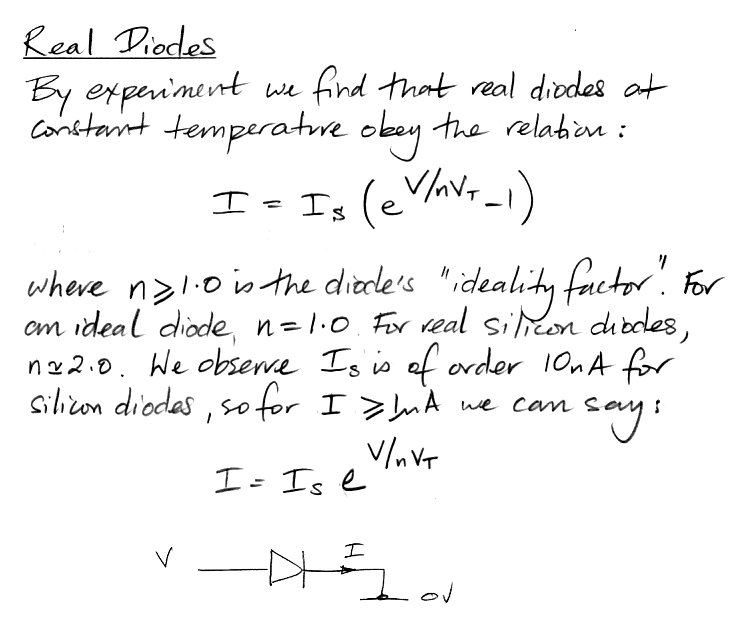 Real Diodes
By experiment we find that real diodes at
constant temperature obey the relation :
I = Is (e^V/nVT - 1)
where n ⩾ 1.0 is the diode's "ideality factor". For
an ideal diode, n = 1.0. For real silicon diodes,
n ≃ 2.0. We observe Is is of order 10nA for
silicon diodes, so for I ⩾ 1mA we can say :
I = Is e^V/nVT
V I
0V